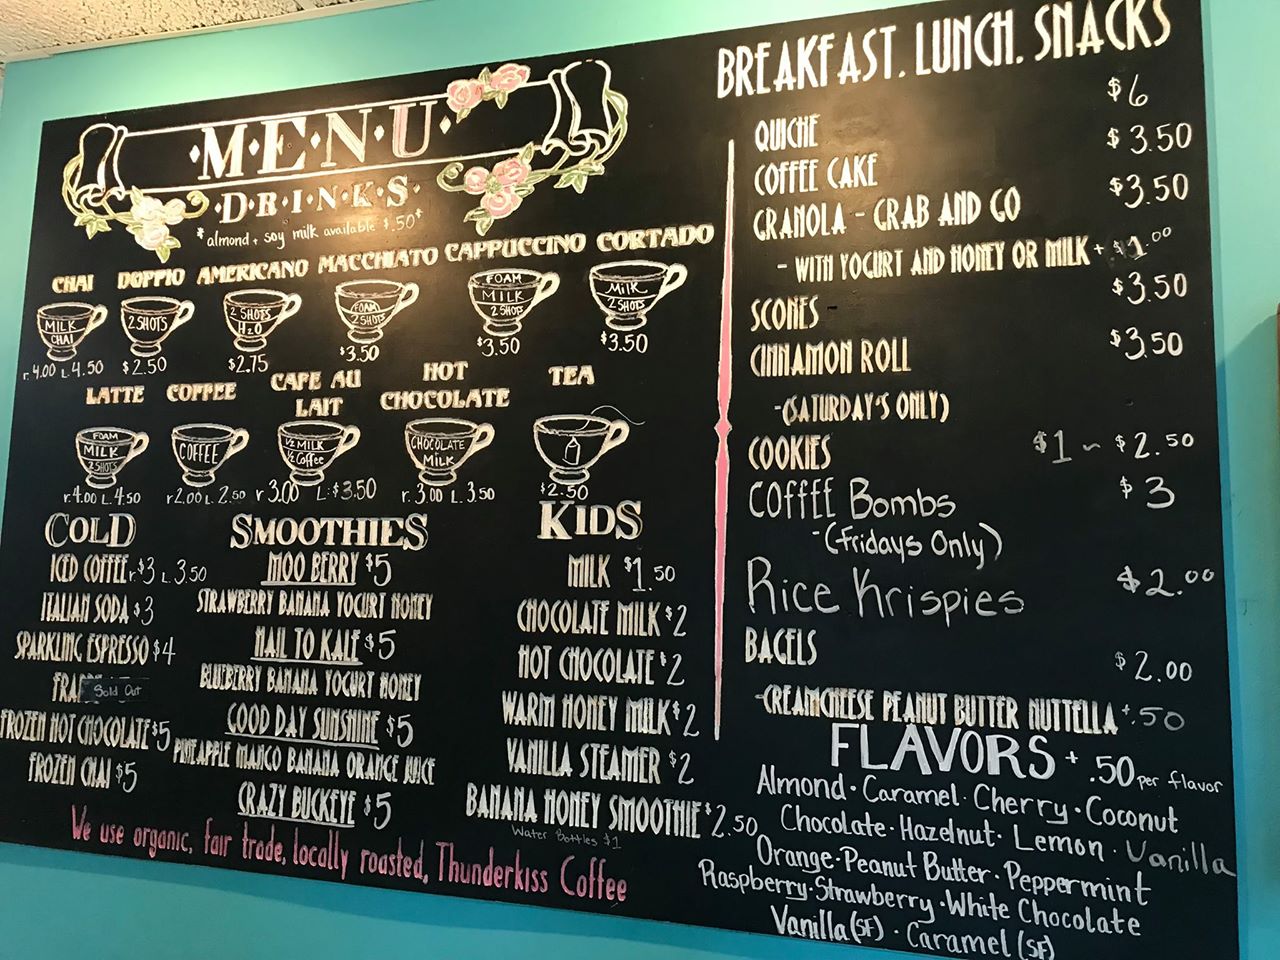 M·E·N·U
D·R·I·N·K·S
*almond + soy milk available $.50*
CHAI DOPPIO AMERICANO MACCHIATO CAPPUCCINO CORTADO
MILK
CHAI
r. 4.00 L. 4.50
2 SHOTS
$2.50
2 SHOTS
H2O
$2.75
FOAM
2 SHOTS
$3.50
FOAM
MILK
2 SHOTS
$3.50
MILK
2 SHOTS
$3.50
LATTE COFFEE CAFE AU LAIT HOT CHOCOLATE TEA
FOAM
MILK
2 SHOTS
r. 4.00 L. 4.50
COFFEE
r 2.00 L. 2.50
½ MILK
½ Coffee
r 3.00 L: $3.50
CHOCOLATE
MILK
r. 3.00 L. 3.50
$2.50
COLD
ICED COFFEE r. $3 L. 3.50
ITALIAN SODA $3
SPARKLING ESPRESSO $4
Sold Out
FROZEN HOT CHOCOLATE $5
FROZEN CHAI $5
SMOOTHIES
MOO BERRY $5
STRAWBERRY BANANA YOGURT HONEY
HAIL TO KALE $5
BLUEBERRY BANANA YOGURT HONEY
GOOD DAY SUNSHINE $5
PINEAPPLE MANGO BANANA ORANGE JUICE
CRAZY BUCKEYE $5
KIDS
MILK $1.50
CHOCOLATE MILK $2
HOT CHOCOLATE $2
WARM HONEY MILK $2
VANILLA STEAMER $2
BANANA HONEY SMOOTHIE $2.50
Water Bottles $1
We use organic, fair trade, locally roasted, Thunderkiss Coffee
BREAKFAST. LUNCH. SNACKS
QUICHE $6
COFFEE CAKE $3.50
GRANOLA - GRAB AND GO $3.50
- WITH YOGURT AND HONEY OR MILK + $1.00
SCONES $3.50
CINNAMON ROLL $3.50
-(SATURDAY'S ONLY)
COOKIES $1 ~ $2.50
COFFEE Bombs $3
-(Fridays Only)
Rice Krispies $2.00
BAGELS $2.00
-CREAMCHEESE PEANUT BUTTER NUTTELLA +.50
FLAVORS +.50 per flavor
Almond · Caramel · Cherry · Coconut
Chocolate · Hazelnut · Lemon · Vanilla
Orange · Peanut Butter · Peppermint
Raspberry · Strawberry · White Chocolate
Vanilla (SF) · Caramel (SF)